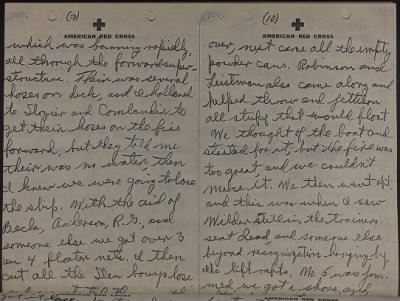 (9)
AMERICAN RED CROSS
which was burning rapidly,
all through the forward super-
structure. Their was several
hoses on deck, and I hollered
to Slozier and Comlankin to
get their hoses on the fire
forward, but they told me
their was no water then
I knew we were going to lose
the ship. With the aid of
Beck, Anderson, R.G., and
someone else we got over 3
on 4 floater nets. I then
cut all the Ilen bouys lose
(10)
AMERICAN RED CROSS
over, next came all the empty
powder cans. Robinson and
Leistman also came along and
helped throw and jettison
all stuff that would float
We thought of the boat and
started for it, but the fire was
too great and we couldn't
make it. We then went aft,
and this was when I saw
Wilder still in the trainers
seat dead and someone else
beyond recognization hanging by
the lift rafts. No. 5 was jam-
med, we got ashore, and